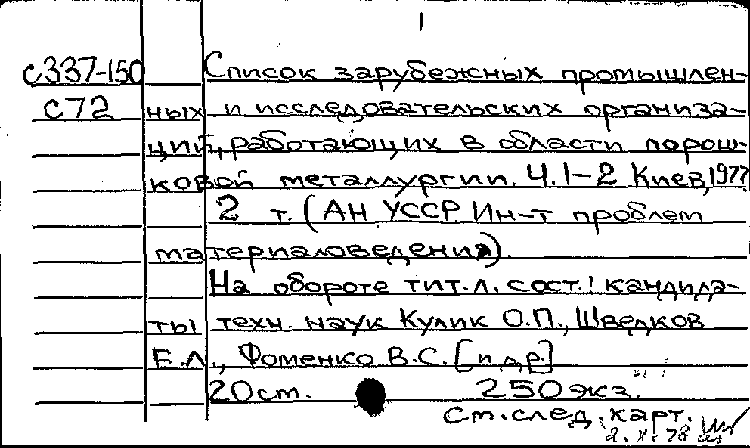 1
с337-150 Список зарубежных промышлен-
с72 ных и исследовательских организа-
ций, работающих в области порош-
ковой металлургии. Ч.1-2 Киев, 1977
2 т. (АН УССР. Ин-т проблем
материаловедения).
На обороте тит.л. сост.: кандида-
ты техн. наук Кулик О.П., Шведков
Е.Л., Фоменко В.С. [и др.]
20 ст. 250 экз.
См. след. карт.
2.XI.78